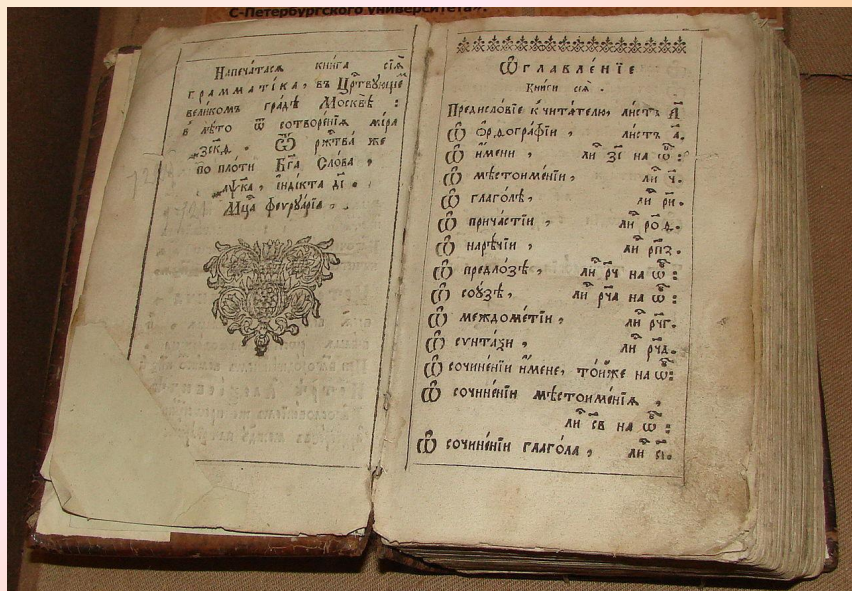 С-Петербургского университета".
Напеча́тасѧ кни́га сїѧ̀
грамма́тїка, въ Црⷭ҇твующемъ
вели́комъ гра́дѣ Москвѣ̀ :
в лѣ́то ѿ сотворе́нїѧ мі́ра
҂зс҃кд . Ѿ ржⷭ҇тва́ же
по пло́ти Бг҃а Сло́ва ,
҂аѱк҃а , їндїкта дı҃ .
Мцⷭ҇а феѵруа́рїа .
Ѡ҆главле́нїе
Книги сїѧ̀ .
Предисло́вїе к̾ чита́телю, ли́стъ а҃
Ѽ ѻ҆рѳогра́фїи , ли́стъ а҃.
Ѽ и҆́мени , лиⷭ҇ з҃ı на ѡ҆б :
Ѽ мѣстоиме́нїи , лиⷭ҇ ч҃.
Ѽ глаго́лѣ , лиⷭ҇ ри҃.
Ѽ прича́стїи , лиⷭ҇ ро҃д.
Ѽ нарѣ́чїи , лиⷭ҇ рп҃з.
Ѽ предло́зѣ , лиⷭ҇ рч҃ на ѡ҆б :
Ѽ сою́зѣ , лиⷭ҇ рч҃а на ѡ҆б :
Ѽ междоме́тїи , лиⷭ҇ рч҃г.
Ѽ сѵнта́ѯи , лиⷭ҇ рч҃д.
Ѽ сочине́нїи и҆́мене, то́йже на ѡ҆б :
Ѽ сочине́нїи мѣстоиме́нїѧ ,
лиⷭ҇ с҃в на ѡ҆б :
Ѽ сочине́нїи глаго́ла , лиⷭ҇